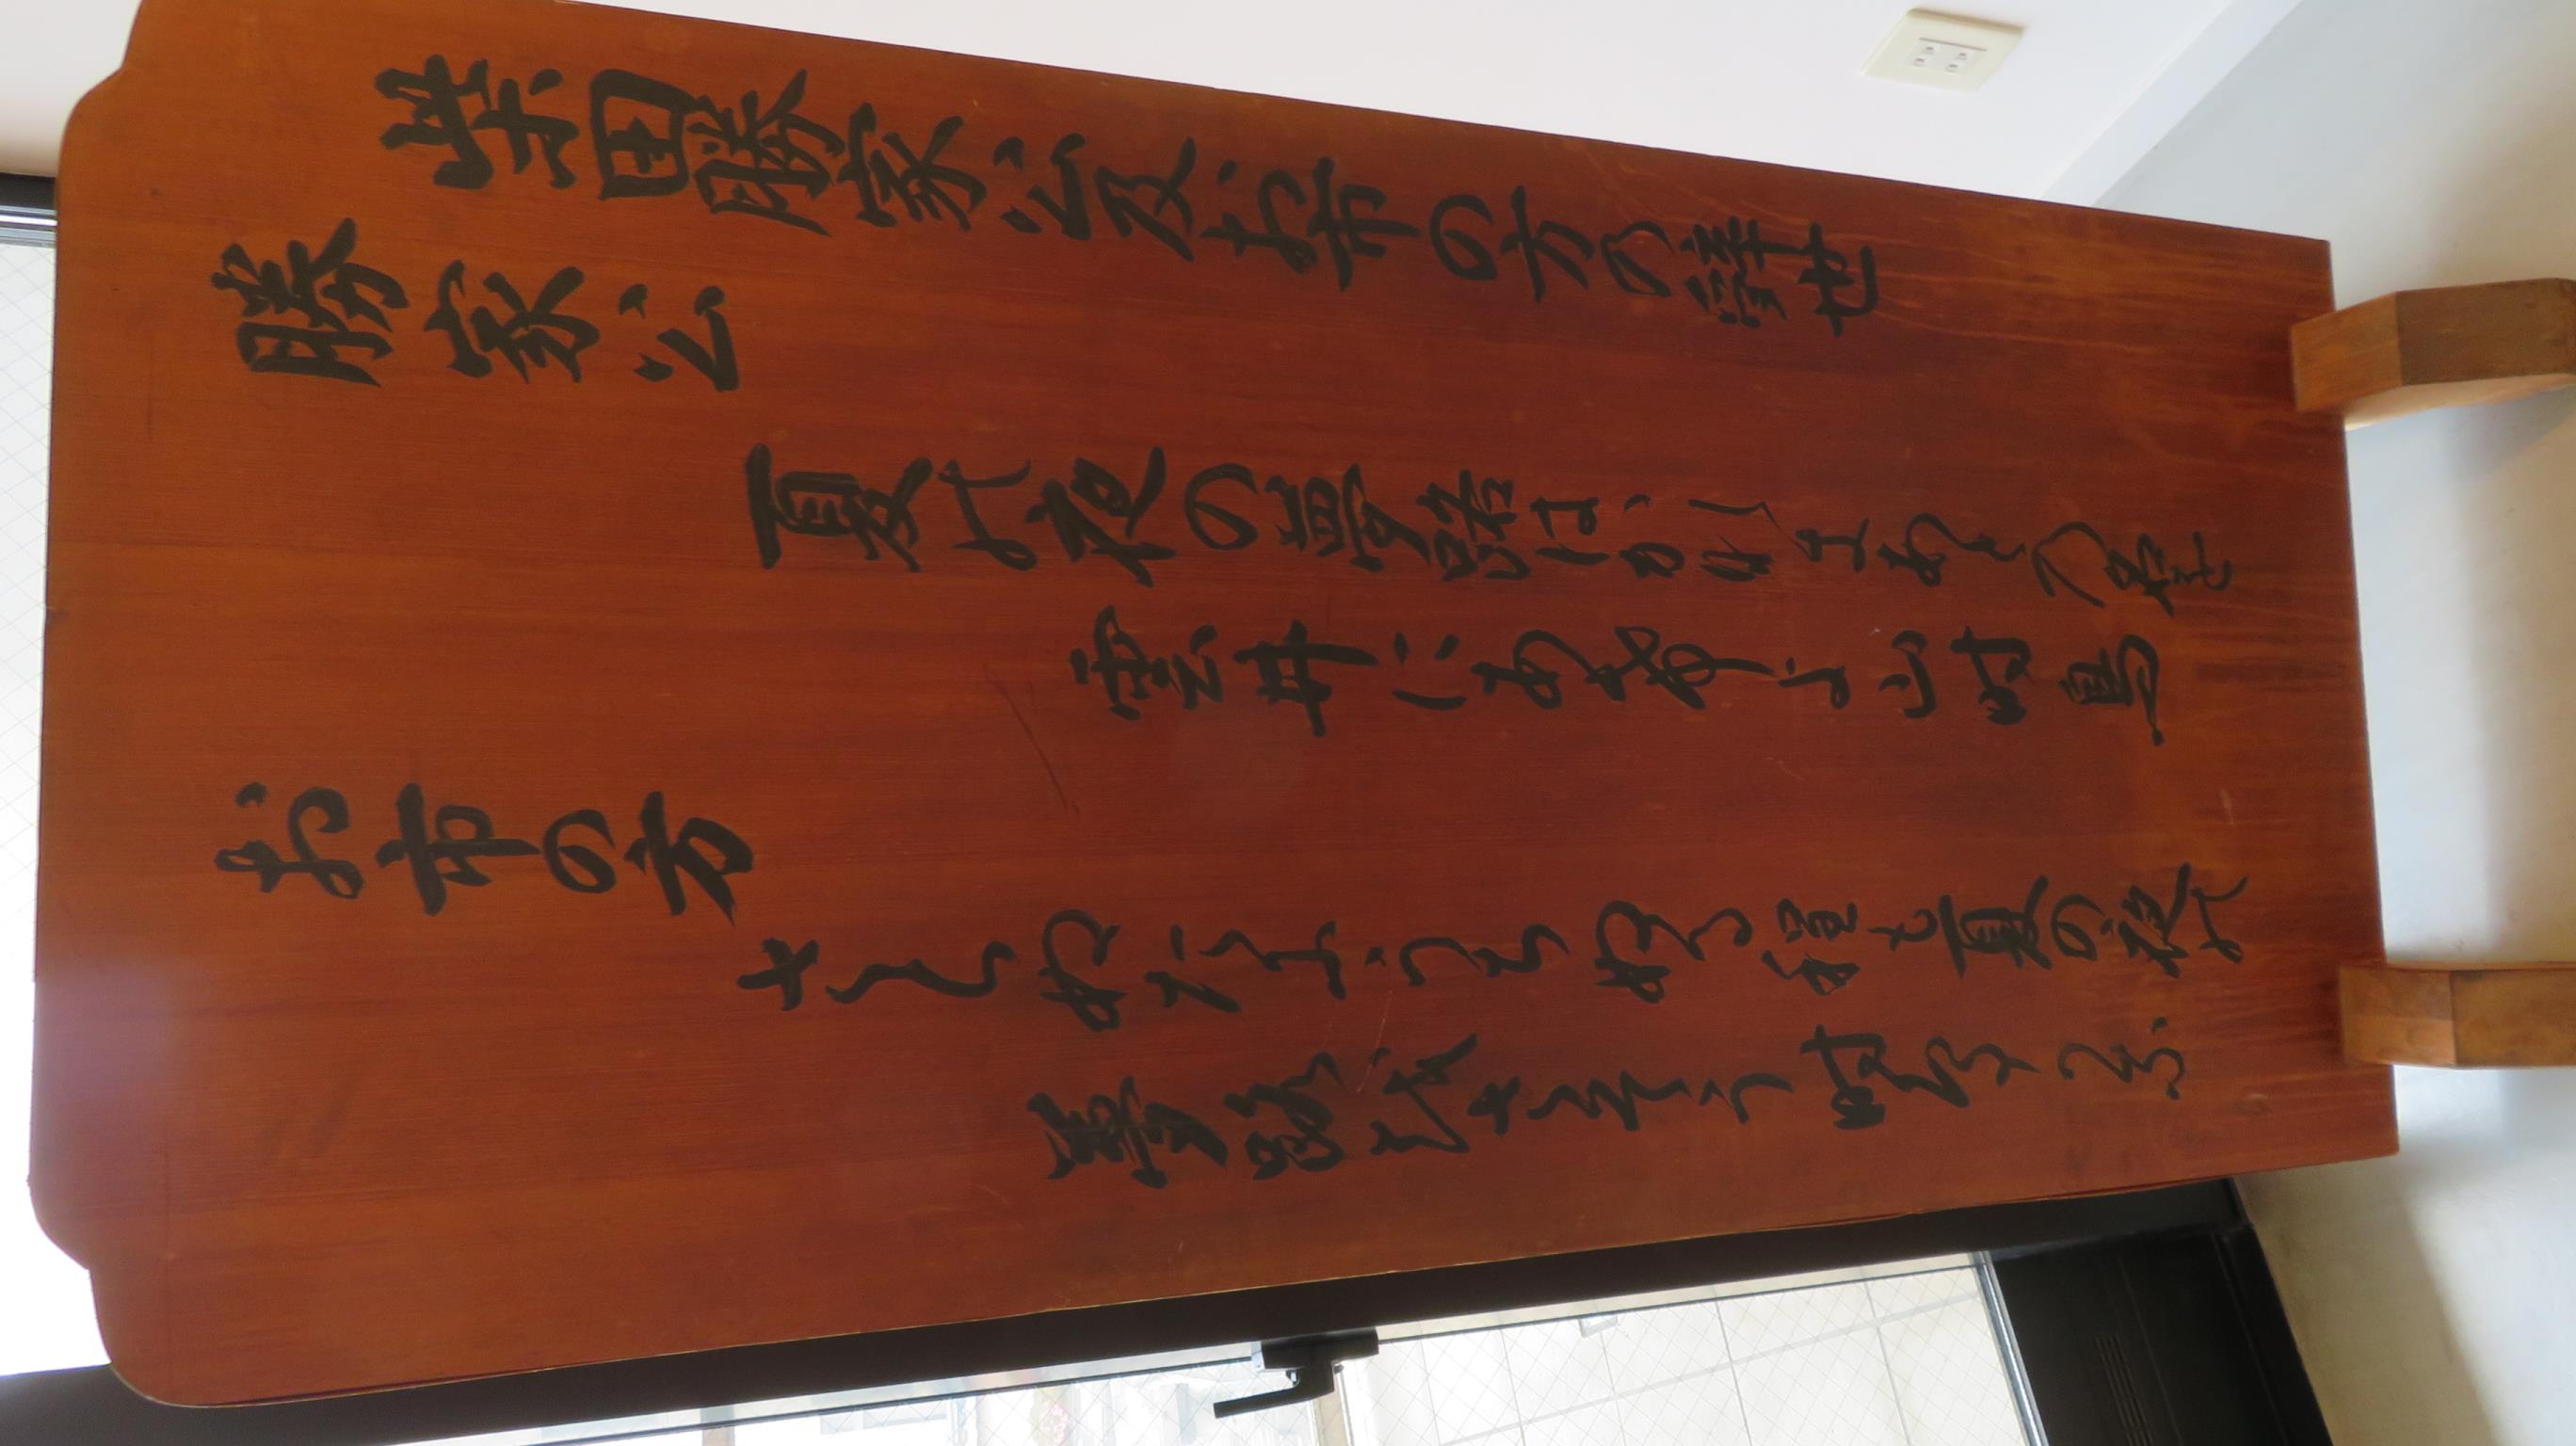 柴田勝家公及お市の方の辭世
勝家公
夏の夜の夢路はかなきあとの名を
雲井にあげよ山時鳥
お市の方
さらぬだにうちぬる程も夏の夜の
夢路をさそふ時鳥かな